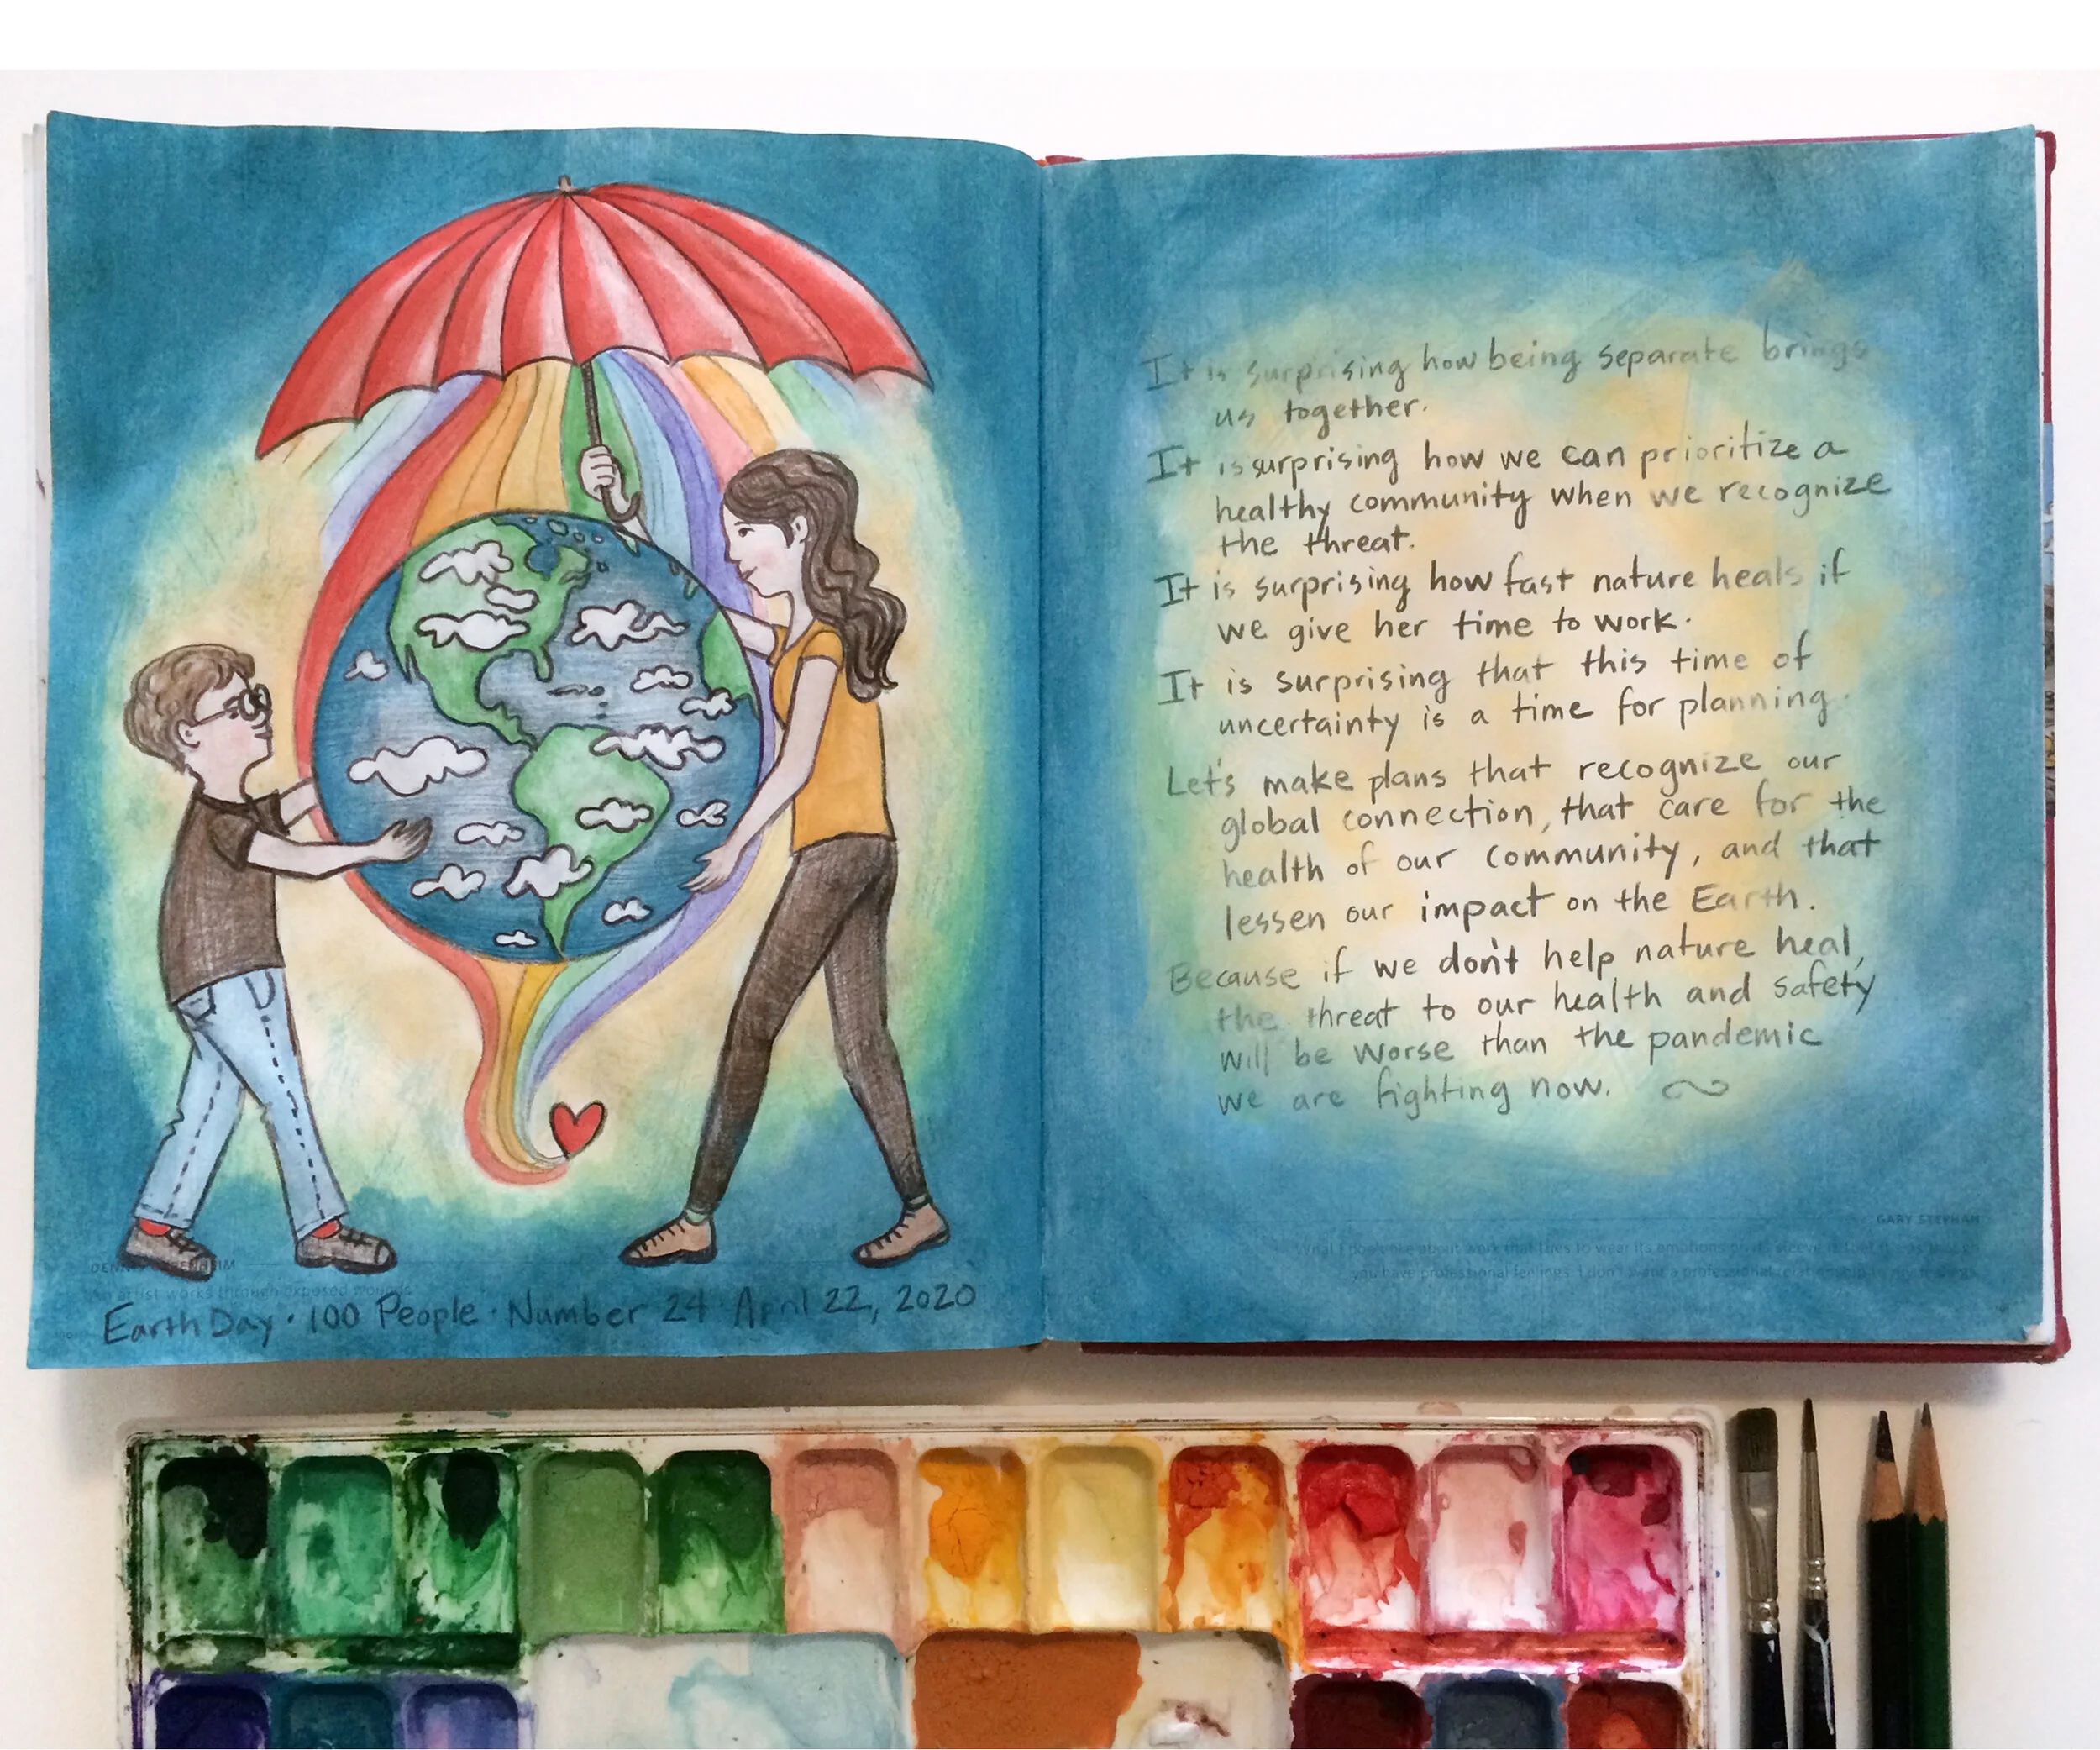 DENN
EIM
An artist works through exposed
Earth Day · 100 People · Number 24 · April 22, 2020
It is surprising how being separate brings
us together.
It is surprising how we can prioritize a
healthy community when we recognize
the threat.
It is surprising how fast nature heals if
we give her time to work.
It is surprising that this time of
uncertainty is a time for planning.
Let's make plans that recognize our
global connection, that care for the
health of our community, and that
lessen our impact on the Earth.
Because if we don't help nature heal,
the threat to our health and safety
will be worse than the pandemic
we are fighting now.
GARY STEPHAN
about work that tries to wear its emotions on its sleeve
you have professional feelings. I don't want a professional